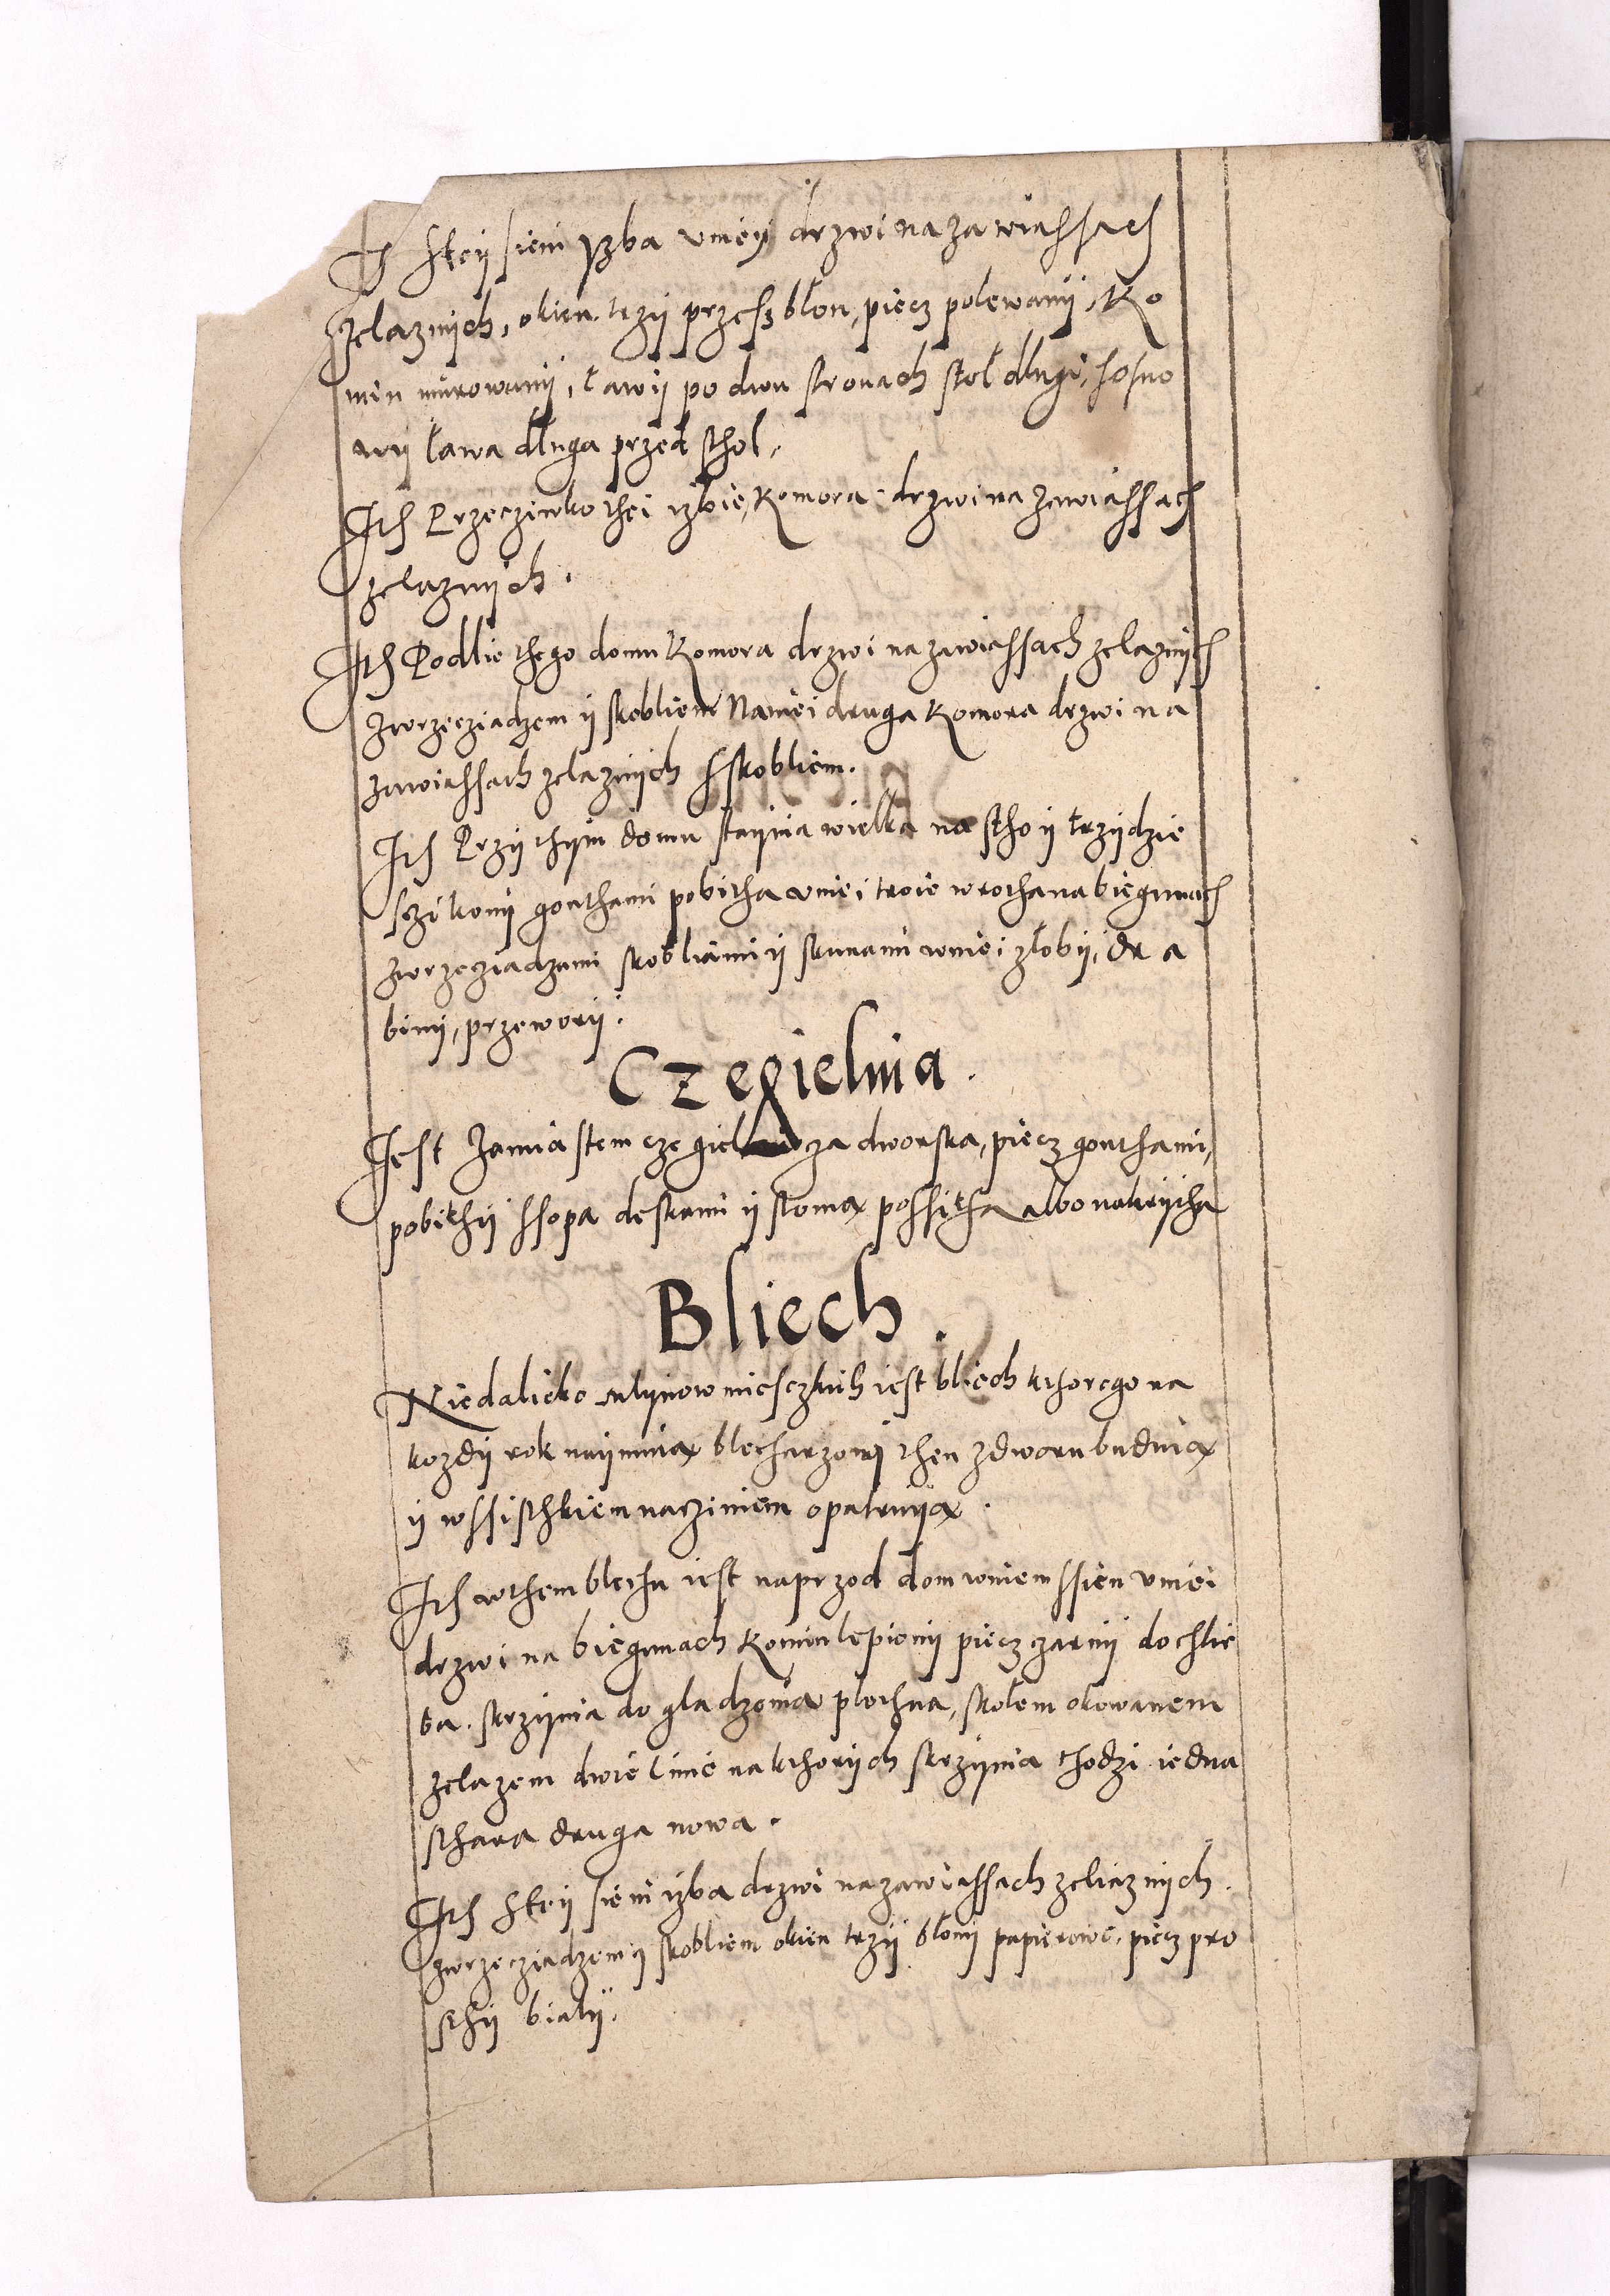 Ith Stey sieni yzba v niey drzwi na zawiassach
zelaznych, okien trzy przess błon, piecz polewany, Ko
min murowany, ławy po dwu stronach stoł dlugi, sosno
wy ława dluga przed sthol.
Ith Przeczewko thei izbie, Komora drzwi na zawiassach
zelaznych.
Ith Podlie thego domu Komora drzwi na zawiassach zelaznych
zwrzecziadzem y skobliem Naniei druga Komora drzwi na
zawiassach zelaznych sskobliem.
Ith Przy thym domu staynia wielka na stho y trzydzie
sczi kony gonthami pobitha v niei troie wrotha na biegunach
zwrzecziadzami skobliami y skunami w niei złoby, dra
biny, przewory.
Czegielnia.
Jest za miastem czegielnicza dworska, piecz gonthami,
pobithy ssopa deskami y słoma possitha albo nakrytha
Bliech.
Niedalieko młynow miesczkich iest bliech kthorego na
kozdy rok nayimuia blecharzowy then z dworu buduia
y wssisthkiem nacziniem opatruyia.
Ith w them blechu iest naprzod dom w niem ssien v niei
drzwi na biegunach Komin lepiony piecz czarny do chlie
ba. skrzynia do gladzenia plothna, skołem okowanem
zelazem dwie linie na kthorych skrzynia chodzi iedna
sthara druga nowa.
Ith Stey sieni izba drzwi na zawiassach zeliaznych.
zwrzecziadzem y skobliem okien trzy błony papierowe, piecz pro
sthy biały.